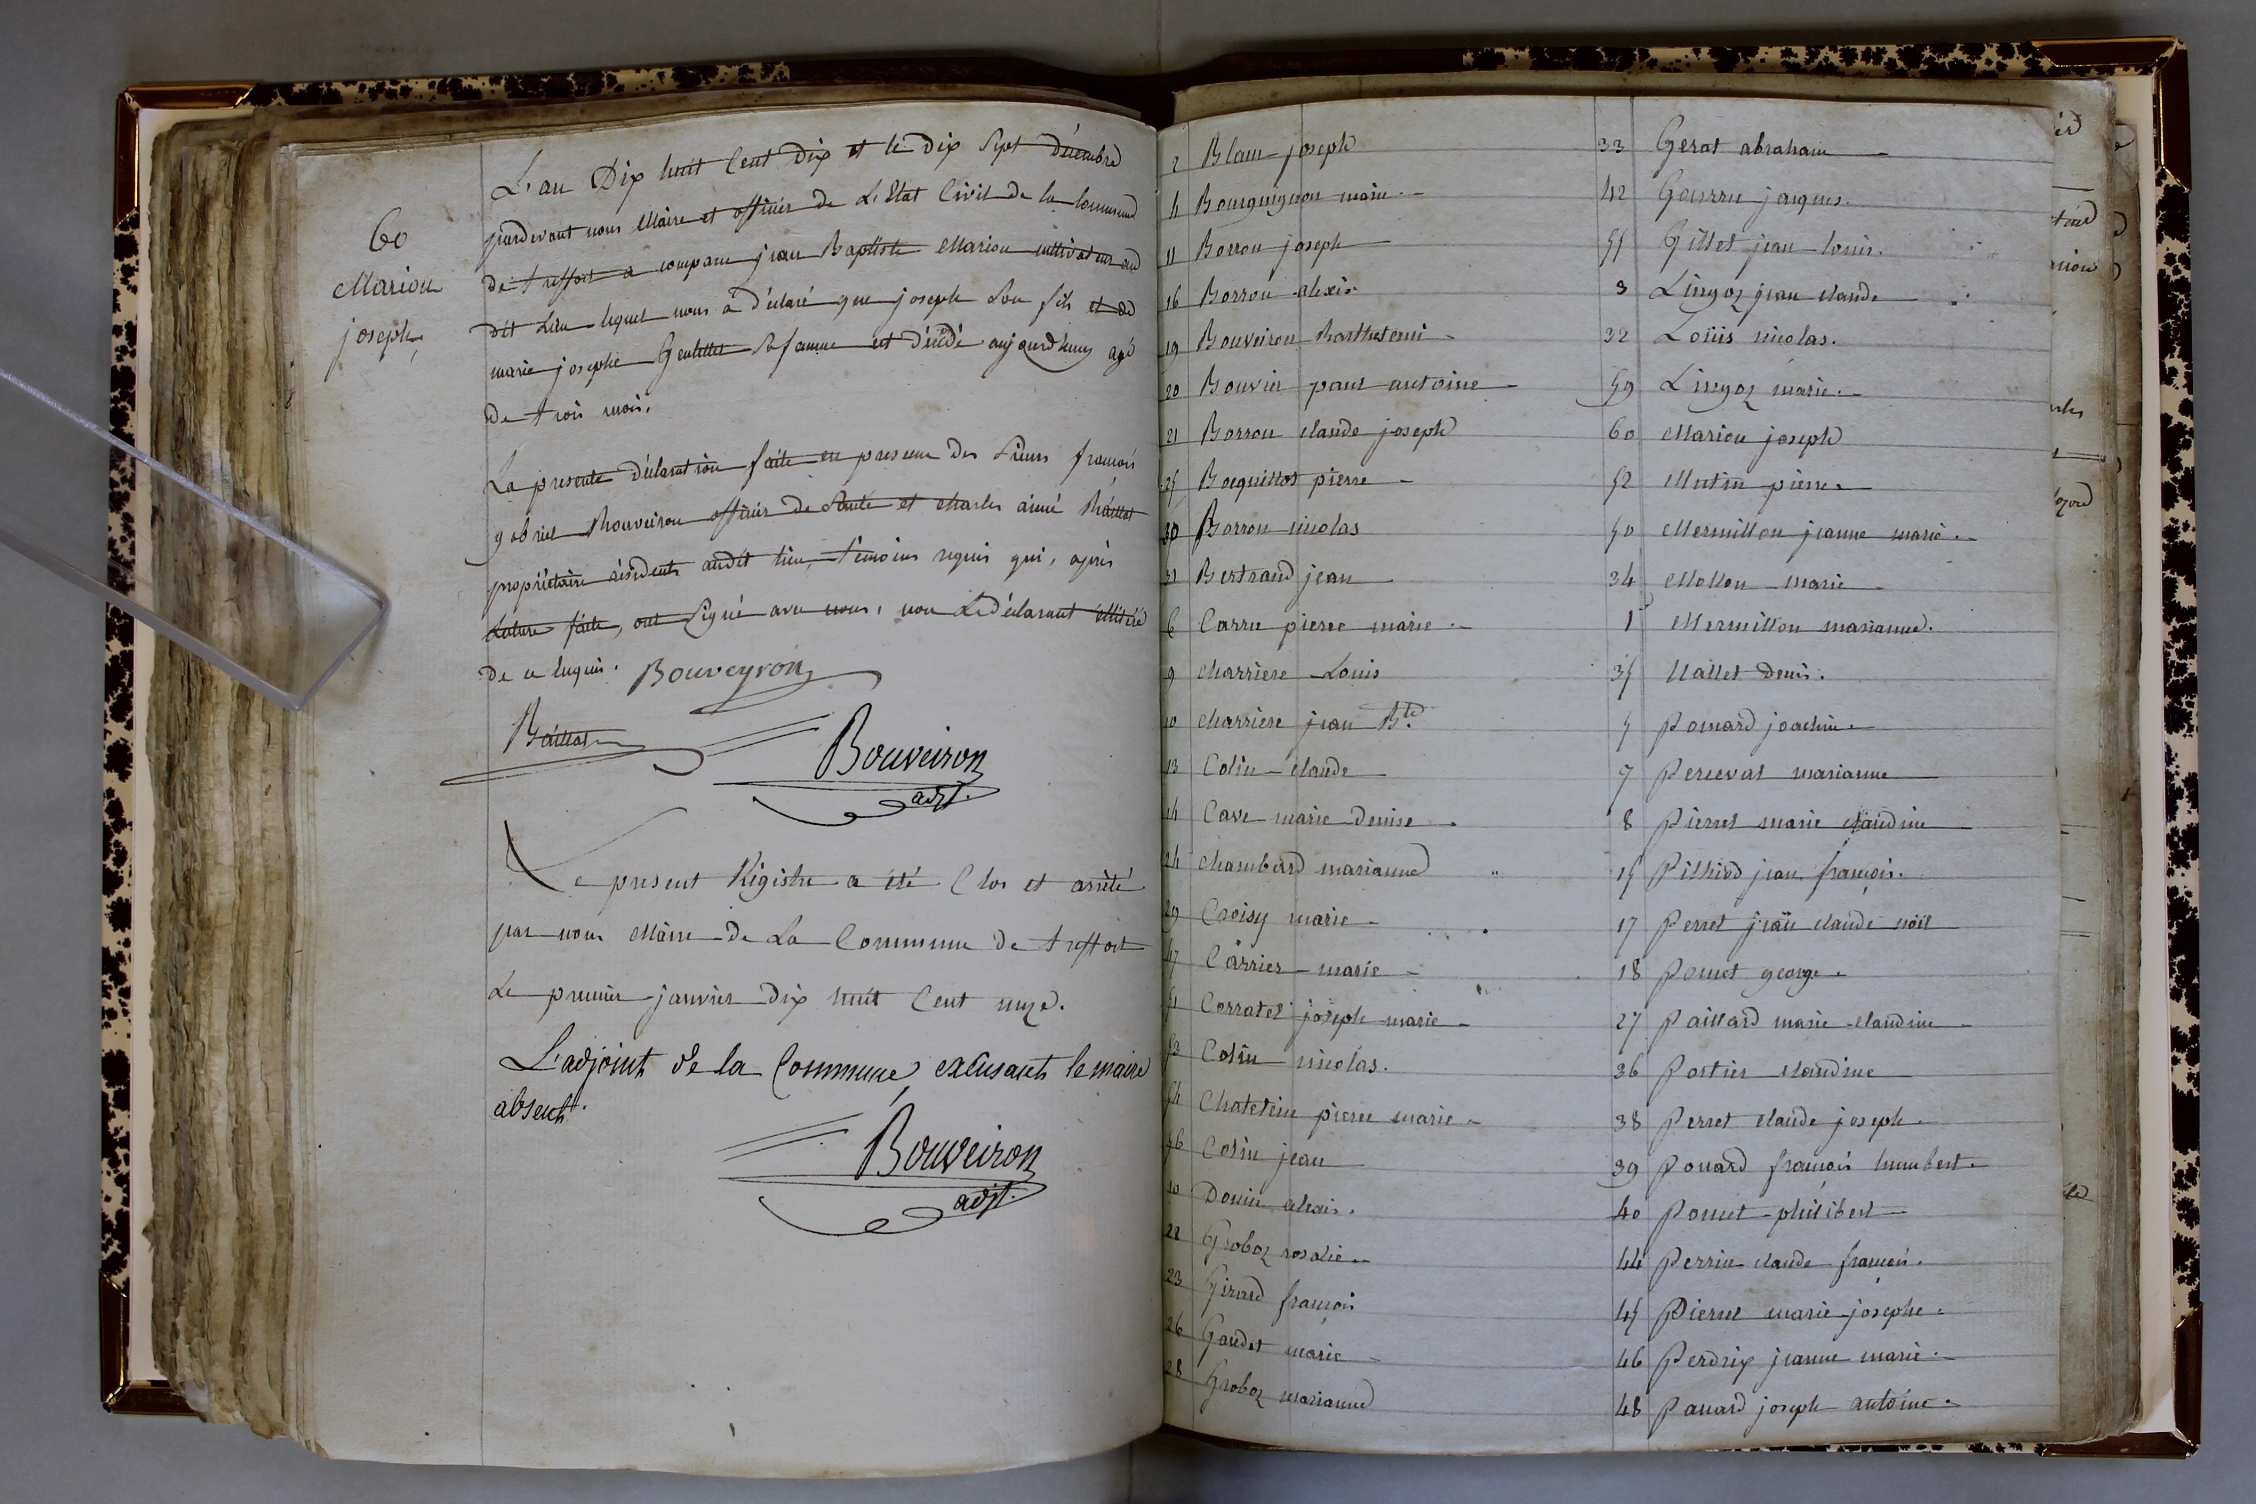 60
Marion
joseph
L'an Dix huit Cent Dix et le Dix Sept décembre
pardevant nous Maire et officier de L'Etat Civil de la Commune
de treffort a comparu jean Baptiste Marion cultivateur au
dit Lieu lequel nous a déclaré que joseph Son fils et de
marie josephe Gentillet Sa famme est décédé aujourdhuy agé
de trois mois.
La presente déclaration faite en presence des Sieurs françois
gabriel Bouveiron officier de Santé et Charles aimé Baillat
propriétaire résidents audit lieu, témoins requis qui, après
Lecture faite, ont Signé avec nous, non Le déclarant illitéré
de ce Enquis. Bouveyron
Baillat
Bouveiron
adjt.
Le present Régistre a été Clos et arrêté
par nous Maire de La Commune de treffort
Le premier janvier Dix huit Cent onze.
L'adjoint de la Commune, excusant le maire
absent.
Bouveiron
adjt.
2 Blanc joseph
4 Bourguignon marie
11 Borron joseph
16 Borron alexis
19 Bouveiron Barthelemi
20 Bouvier paul antoine
21 Borron claude joseph
25 Bocquillot pierre
30 Borron nicolas
31 Bertrand jean
6 Carru pierre marie
9 Charriere Louis
10 Charriere jean Bte
13 Colin claude
14 Cave marie Denise
24 Chambard marianne
29 Croisy marie
47 Carrier marie
51 Corratel joseph marie
53 Colin nicolas.
54 Chatelain pierre marie
56 Colin jean
10 Donin alexis.
22 Groboz rosalie
23 Girard françois
26 Gaudet marie
28 Groboz marianne
33 Gerat abraham
42 Gourru jacques.
55 Gillet jean louis.
3 Lingoz jean claude
32 Loüis nicolas.
59 Lingoz marie.
60 Marion joseph
52 Mutin pierre
50 Mermillon jeanne marie
34 Mollon marie
1 Mermillon marianne.
35 Nallet Denis.
5 Ponard joachim
7 Perceval marianne
8 Pierret marie claudine
15 Pilliod jean françois.
17 Perret jean claude noël
18 Pomet george
27 Paillard marie claudine
36 Portier claudine
38 Perret claude joseph
39 Ponard françois humbert
40 Pomet philibert
44 Perrin claude françois.
45 Pierret marie josephe.
46 Perdrix jeanne marie
48 Panard joseph antoine